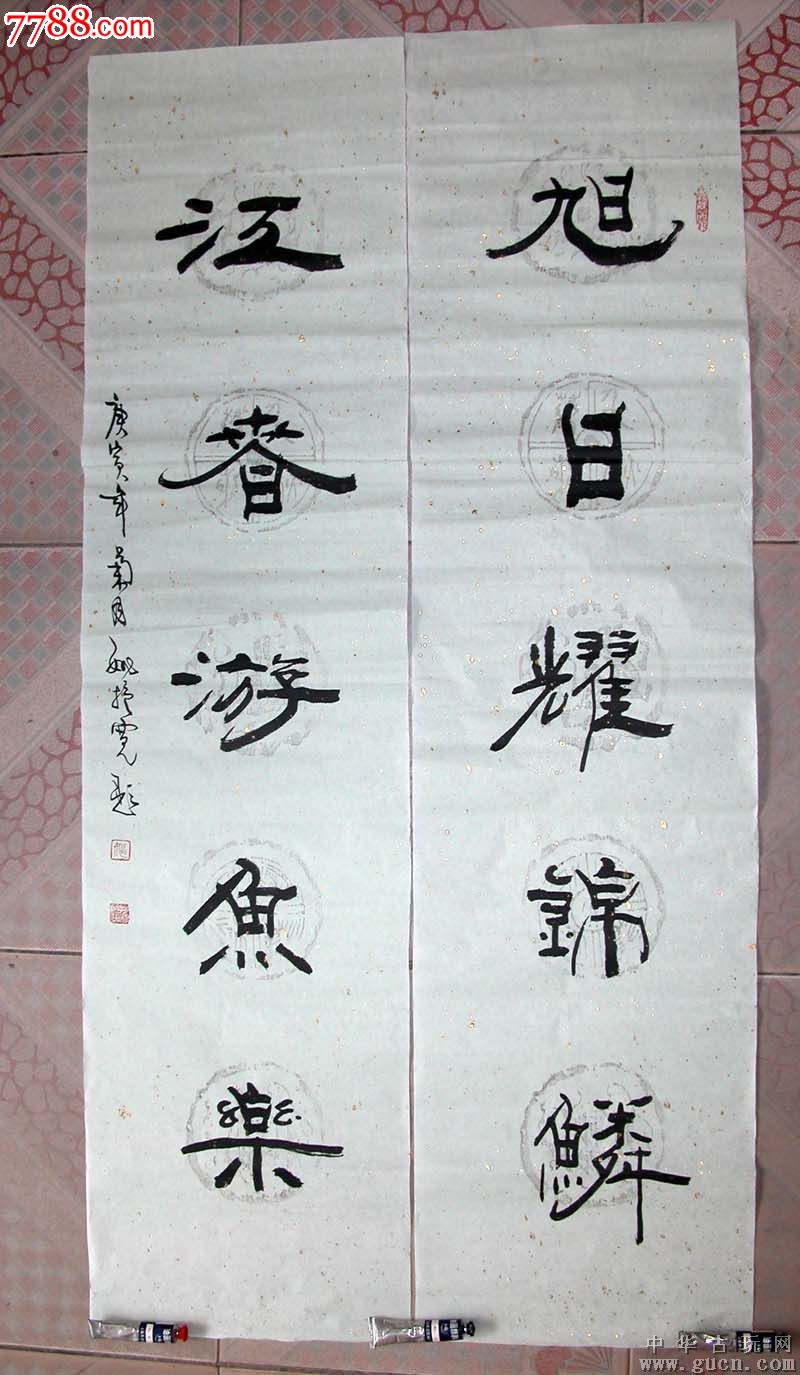 7788.com
旭日耀錦鱗
江春游魚樂
庚寅年菊月姚抒雲題
中华古玩网
www.gucn.com